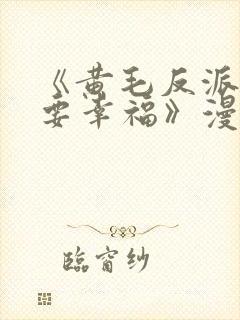 《黄毛反派
要幸福》漫
临窗纱